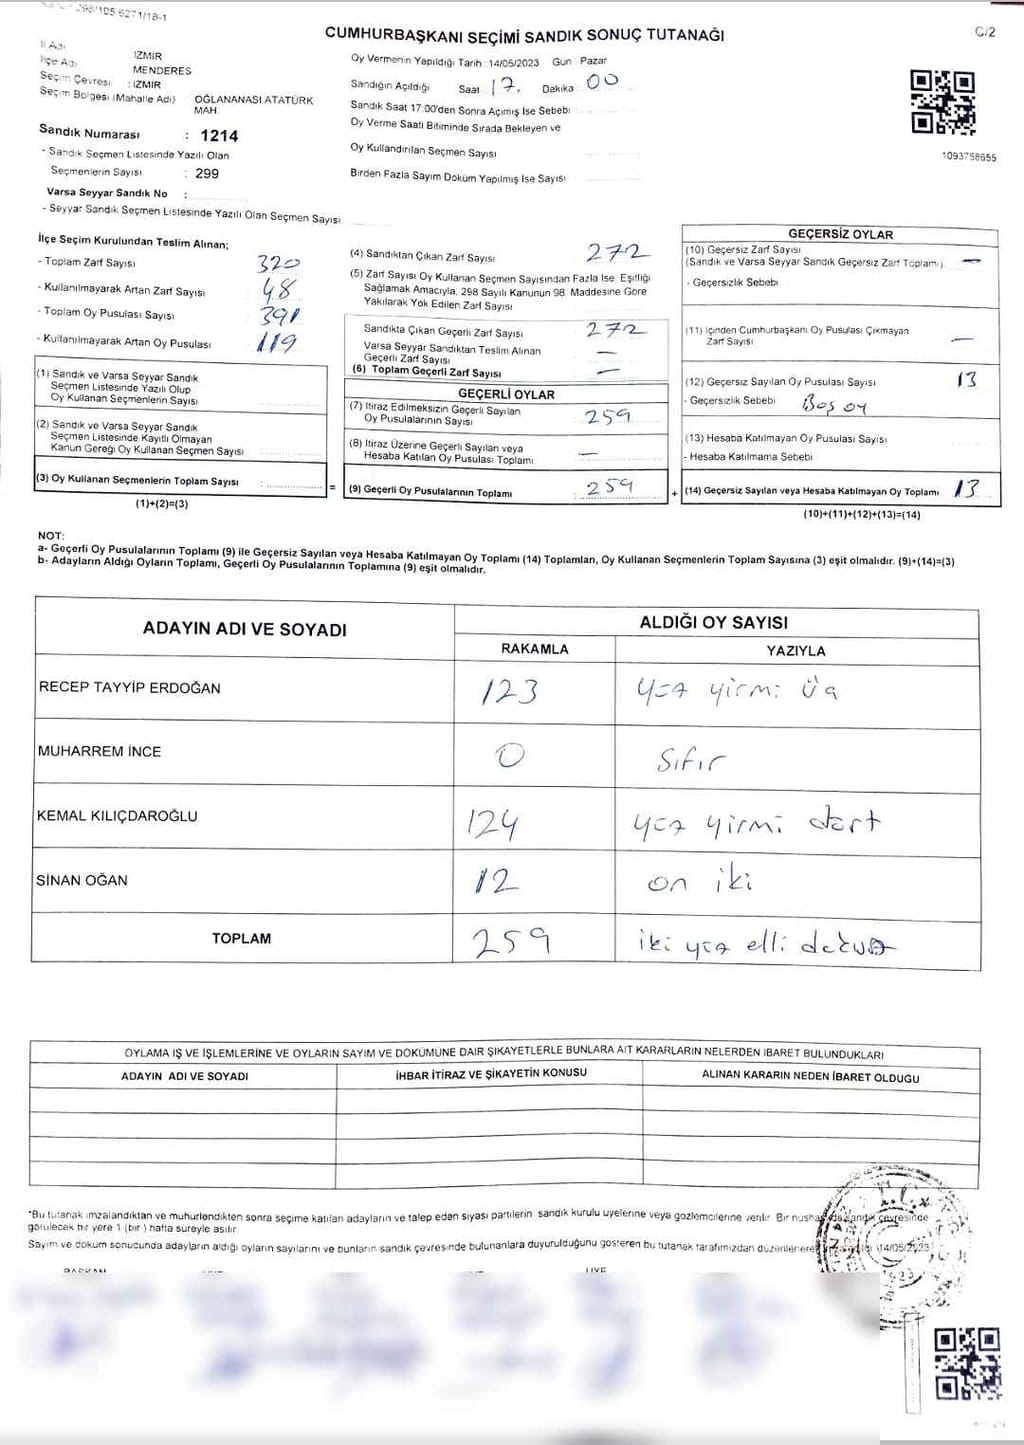 298/105-6271/18-1
CUMHURBAŞKANI SEÇİMİ SANDIK SONUÇ TUTANAĞI
C/2
İl Adı
İZMİR
İlçe Adı
MENDERES
Seçim Çevresi : İZMİR
Seçim Bölgesi (Mahalle Adı) OĞLANANASI ATATÜRK
MAH.
Oy Vermenin Yapıldığı Tarih : 14/05/2023 Gün Pazar
Sandığın Açıldığı Saat 17. Dakika : 00
Sandık Saat 17:00'den Sonra Açımış İse Sebebi :
Oy Verme Saati Bitiminde Sırada Bekleyen ve
Oy Kullandırılan Seçmen Sayısı
Birden Fazla Sayım Döküm Yapılmış İse Sayısı
1093758655
Sandık Numarası : 1214
- Sandık Seçmen Listesinde Yazılı Olan
Seçmenlerin Sayısı : 299
Varsa Seyyar Sandık No :
- Seyyar Sandık Seçmen Listesinde Yazılı Olan Seçmen Sayısı
İlçe Seçim Kurulundan Teslim Alınan;
- Toplam Zarf Sayısı 320
- Kullanılmayarak Artan Zarf Sayısı 48
- Toplam Oy Pusulası Sayısı 391
- Kullanılmayarak Artan Oy Pusulası 119
(1) Sandık ve Varsa Seyyar Sandık
Seçmen Listesinde Yazılı Olup
Oy Kullanan Seçmenlerin Sayısı
(2) Sandık ve Varsa Seyyar Sandık
Seçmen Listesinde Kayıtlı Olmayan
Kanun Gereği Oy Kullanan Seçmen Sayısı
(3) Oy Kullanan Seçmenlerin Toplam Sayısı :
(1)+(2)=(3)
=
(4) Sandıktan Çıkan Zarf Sayısı 272
(5) Zarf Sayısı Oy Kullanan Seçmen Sayısından Fazla İse, Eşitliği
Sağlamak Amacıyla, 298 Sayılı Kanunun 98. Maddesine Göre
Yakılarak Yok Edilen Zarf Sayısı
Sandıkta Çıkan Geçerli Zarf Sayısı 272
Varsa Seyyar Sandıktan Teslim Alınan
Geçerli Zarf Sayısı —
(6) Toplam Geçerli Zarf Sayısı —
GEÇERLİ OYLAR
(7) İtiraz Edilmeksizin Geçerli Sayılan
Oy Pusulalarının Sayısı 259
(8) İtiraz Üzerine Geçerli Sayılan veya
Hesaba Katılan Oy Pusulası Toplamı —
(9) Geçerli Oy Pusulalarının Toplamı : 259
+
GEÇERSİZ OYLAR
(10) Geçersiz Zarf Sayısı
(Sandık ve Varsa Seyyar Sandık Geçersiz Zarf Toplamı) —
- Geçersizlik Sebebi
(11) İçinden Cumhurbaşkanı Oy Pusulası Çıkmayan
Zarf Sayısı —
(12) Geçersiz Sayılan Oy Pusulası Sayısı 13
- Geçersizlik Sebebi Boş oy
(13) Hesaba Katılmayan Oy Pusulası Sayısı
- Hesaba Katılmama Sebebi
(14) Geçersiz Sayılan veya Hesaba Katılmayan Oy Toplamı 13
(10)+(11)+(12)+(13)=(14)
NOT:
a- Geçerli Oy Pusulalarının Toplamı (9) ile Geçersiz Sayılan veya Hesaba Katılmayan Oy Toplamı (14) Toplamları, Oy Kullanan Seçmenlerin Toplam Sayısına (3) eşit olmalıdır. (9)+(14)=(3)
b- Adayların Aldığı Oyların Toplamı, Geçerli Oy Pusulalarının Toplamına (9) eşit olmalıdır.
ADAYIN ADI VE SOYADI
ALDIĞI OY SAYISI
RAKAMLA YAZIYLA
RECEP TAYYİP ERDOĞAN 123 yüz yirmi üç
MUHARREM İNCE 0 sıfır
KEMAL KILIÇDAROĞLU 124 yüz yirmi dört
SİNAN OĞAN 12 on iki
TOPLAM 259 iki yüz elli dokuz
OYLAMA İŞ VE İŞLEMLERİNE VE OYLARIN SAYIM VE DÖKÜMÜNE DAİR ŞİKAYETLERLE BUNLARA AİT KARARLARIN NELERDEN İBARET BULUNDUKLARI
ADAYIN ADI VE SOYADI İHBAR İTİRAZ VE ŞİKAYETİN KONUSU ALINAN KARARIN NEDEN İBARET OLDUĞU
*Bu tutanak imzalandıktan ve mühürlendikten sonra seçime katılan adayların ve talep eden siyasi partilerin sandık kurulu üyelerine veya gözlemcilerine verilir. Bir nüshası da sandık çevresinde
görülecek bir yere 1 (bir ) hafta süreyle asılır.
Sayım ve döküm sonucunda adayların aldığı oyların sayılarını ve bunların sandık çevresinde bulunanlara duyurulduğunu gösteren bu tutanak tarafımızdan düzenlenerek 14/05/2023
BAŞKAN ÜYE
T.C.
1923